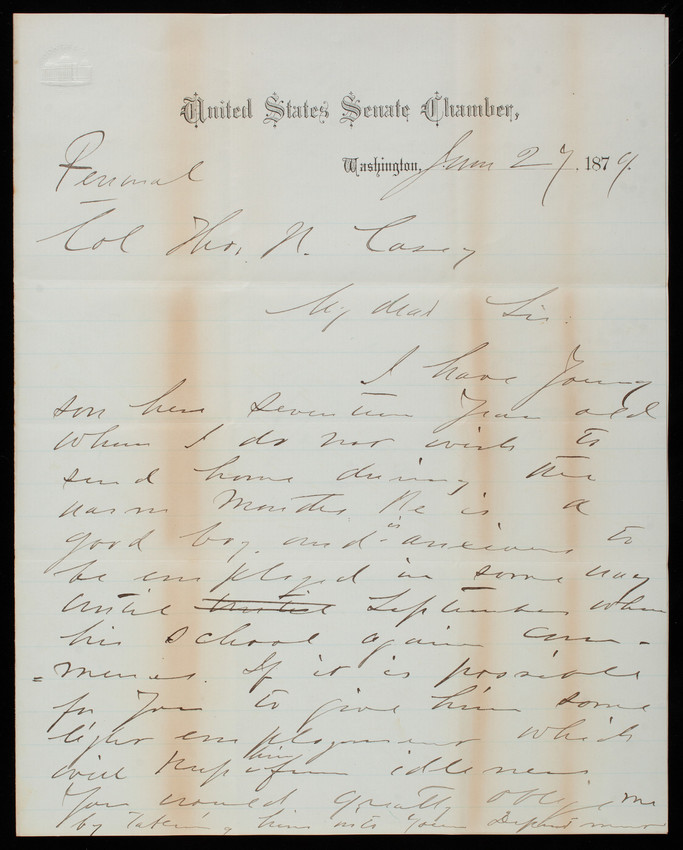 United States Senate Chamber,
Washington, June 27, 1879.
Personal
Col Thos. N. Casey
My dear Sir:
I have Young
son here seventeen Years old
whom I do not wish to
send home during the
warm months He is a
good boy, and is anxious to
be employed in some way
until until September when
his school again com-
=mences. If it is possible
for You to give him some
light employment which
will keep him from idleness
You would greatly oblige me
by taking him into Your Department